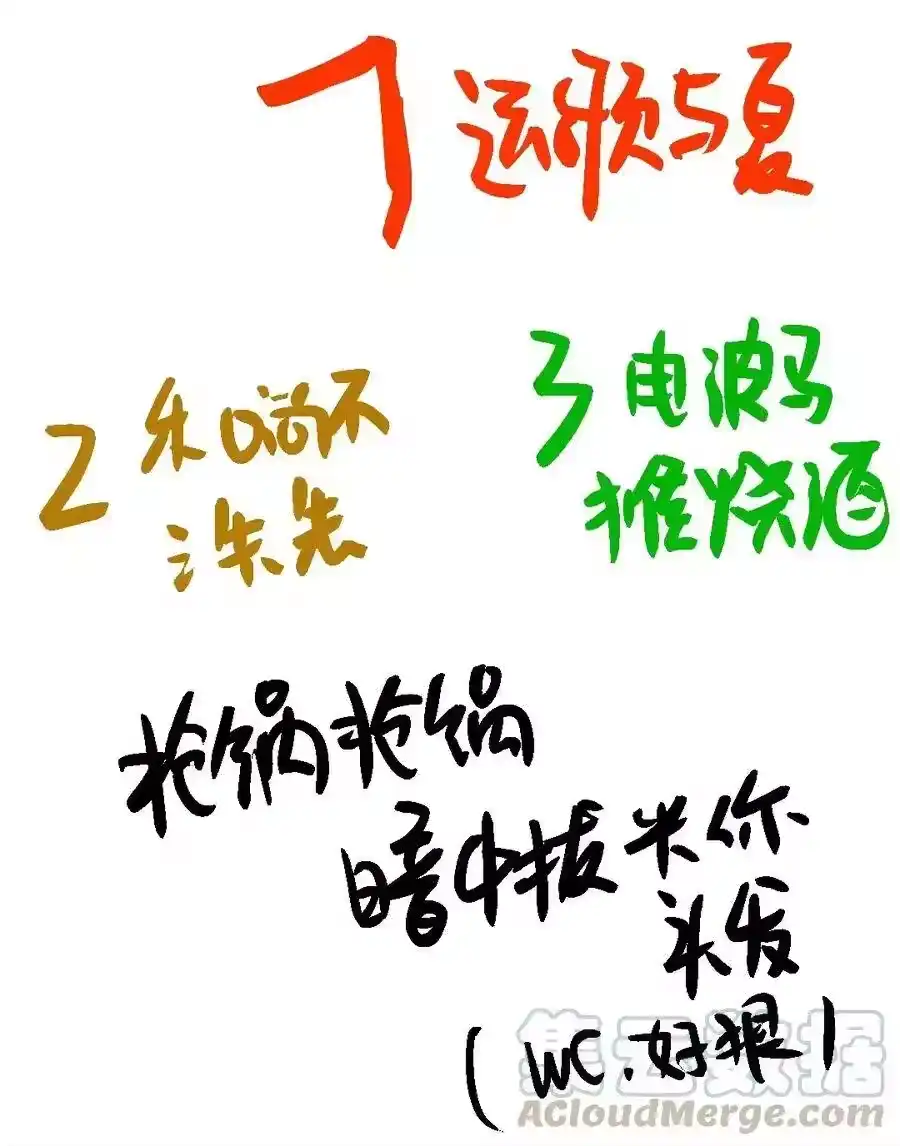 1 运歌与夏
2 朱口尚不
洗先
3 电波马
推烧酒
抢锅抢锅
暗中拔米你
头发
(WC.好狠)
集云数据
ACloudMerge.com